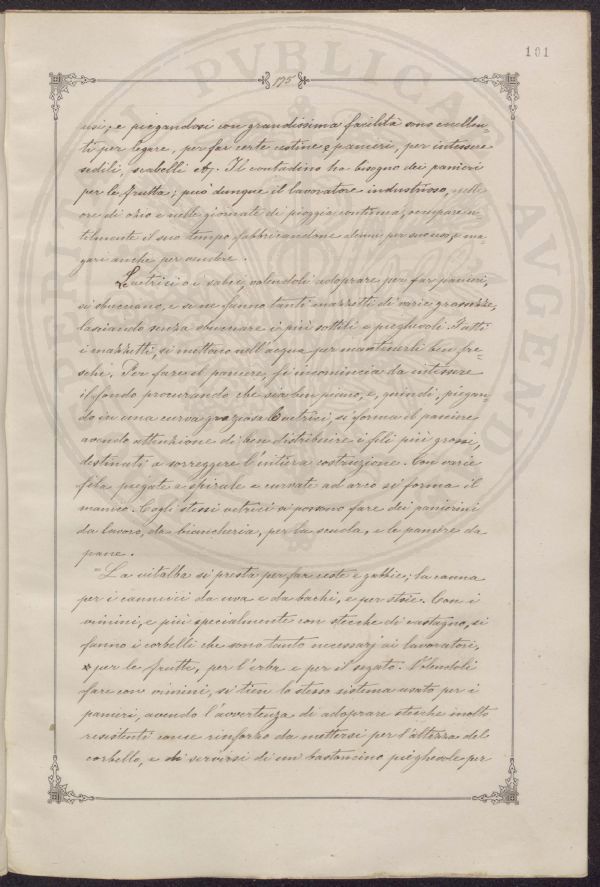 101
175
usi; e piegandosi con grandissima facilità sono eccellen-
ti per legare, per far certe cestine e panieri, per intessere
sedili, scabelli etc. Il contadino ha bisogno dei panieri
per le frutta; può dunque il lavoratore industrioso, nelle
ore di ozio e nelle giornate di pioggia continua, occupare u-
tilmente il suo tempo fabbricandone alcuni per suo uso, e ma-
gari anche per vendere.
I vetrici o i salci, volendoli adoprare per far panieri,
si sbucciano, e se ne fanno tanti mazzetti di varie grossezze,
lasciando senza sbucciare i più sottili e pieghevoli. Fatti
i mazzetti, si mettono nell'acqua per mantenerli ben fre-
schi. Per fare il paniere, si incomincia da intessere
il fondo procurando che sia ben piano, e, quindi, piegan-
do in una curva graziosa i vetrici, si forma il paniere
avendo attenzione di ben distribuire i fili più grossi,
destinati a sorreggere l'intiera costruzione. Con varie
fila piegate a spirale e curvate ad arco si forma il
manico. Cogli stessi vetrici si possono fare dei panierini
da lavoro, da biancheria, per la scuola, e le paniere da
pane.
La vitalba si presta per far ceste e gabbie; la canna
per i cannicci da uva e da bachi, e per stoie. Con i
vimini, e più specialmente con stecche di castagno, si
fanno i corbelli che sono tanto necessarj ai lavoratori,
per le frutti, per l'erbe e per il segato. Volendoli
fare con vimini, si tien lo stesso sistema usato per i
panieri, avendo l'avvertenza di adoprare stecche molto
resistenti come rinforzo da mettersi per l'altezza del
corbello, e di servirsi di un bastoncino pieghevole per